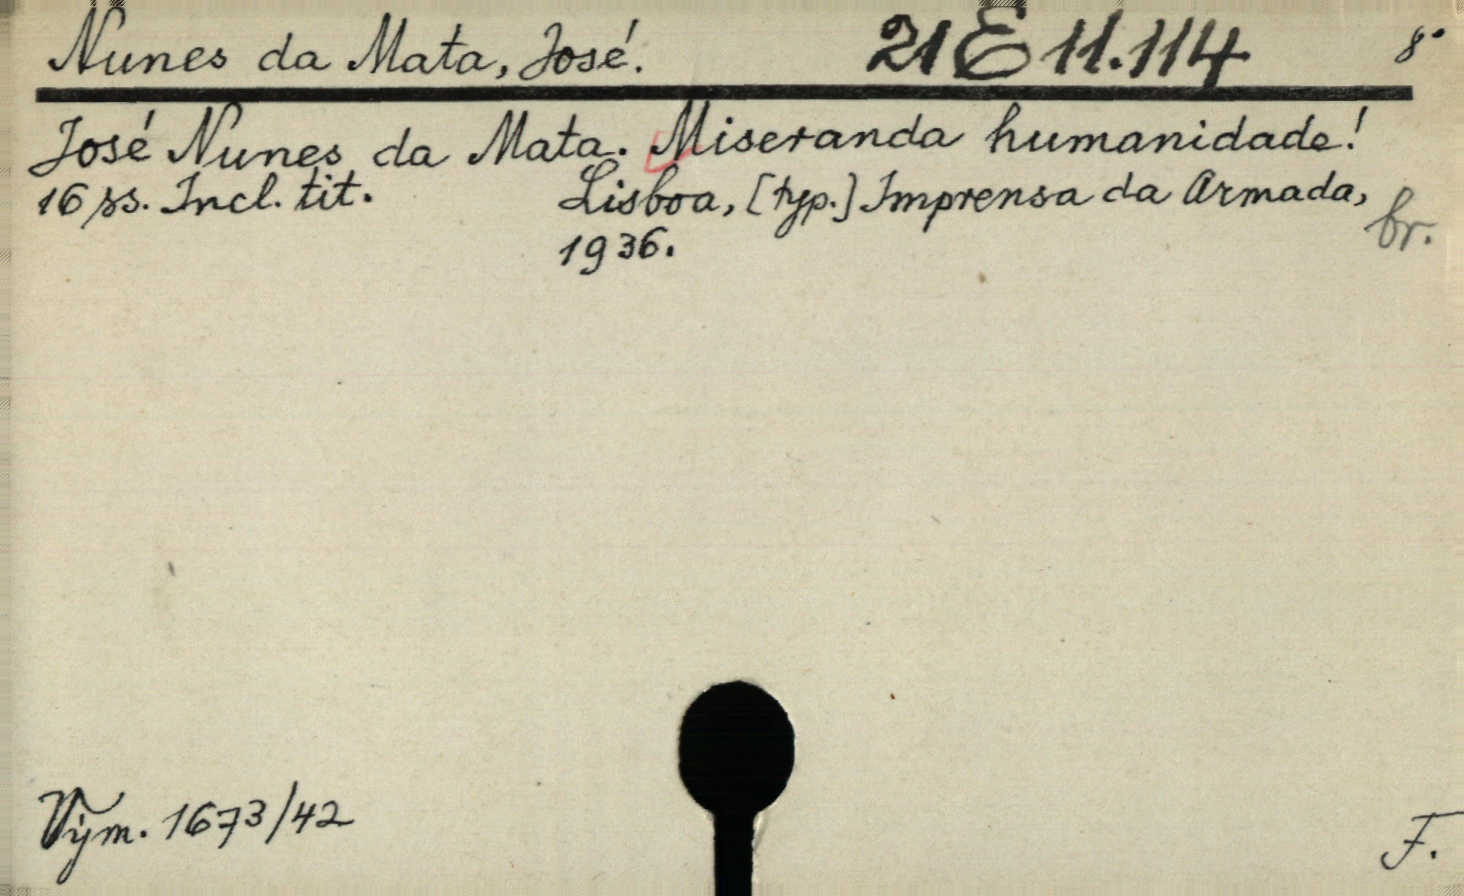 Nunes da Mata, José. 21 E 11.114 8°
José Nunes da Mata. Miseranda humanidade!
16 ss. Incl. tit. Lisboa, [typ.] Imprensa da Armada,
1936. br.
Vým. 1673/42 F.